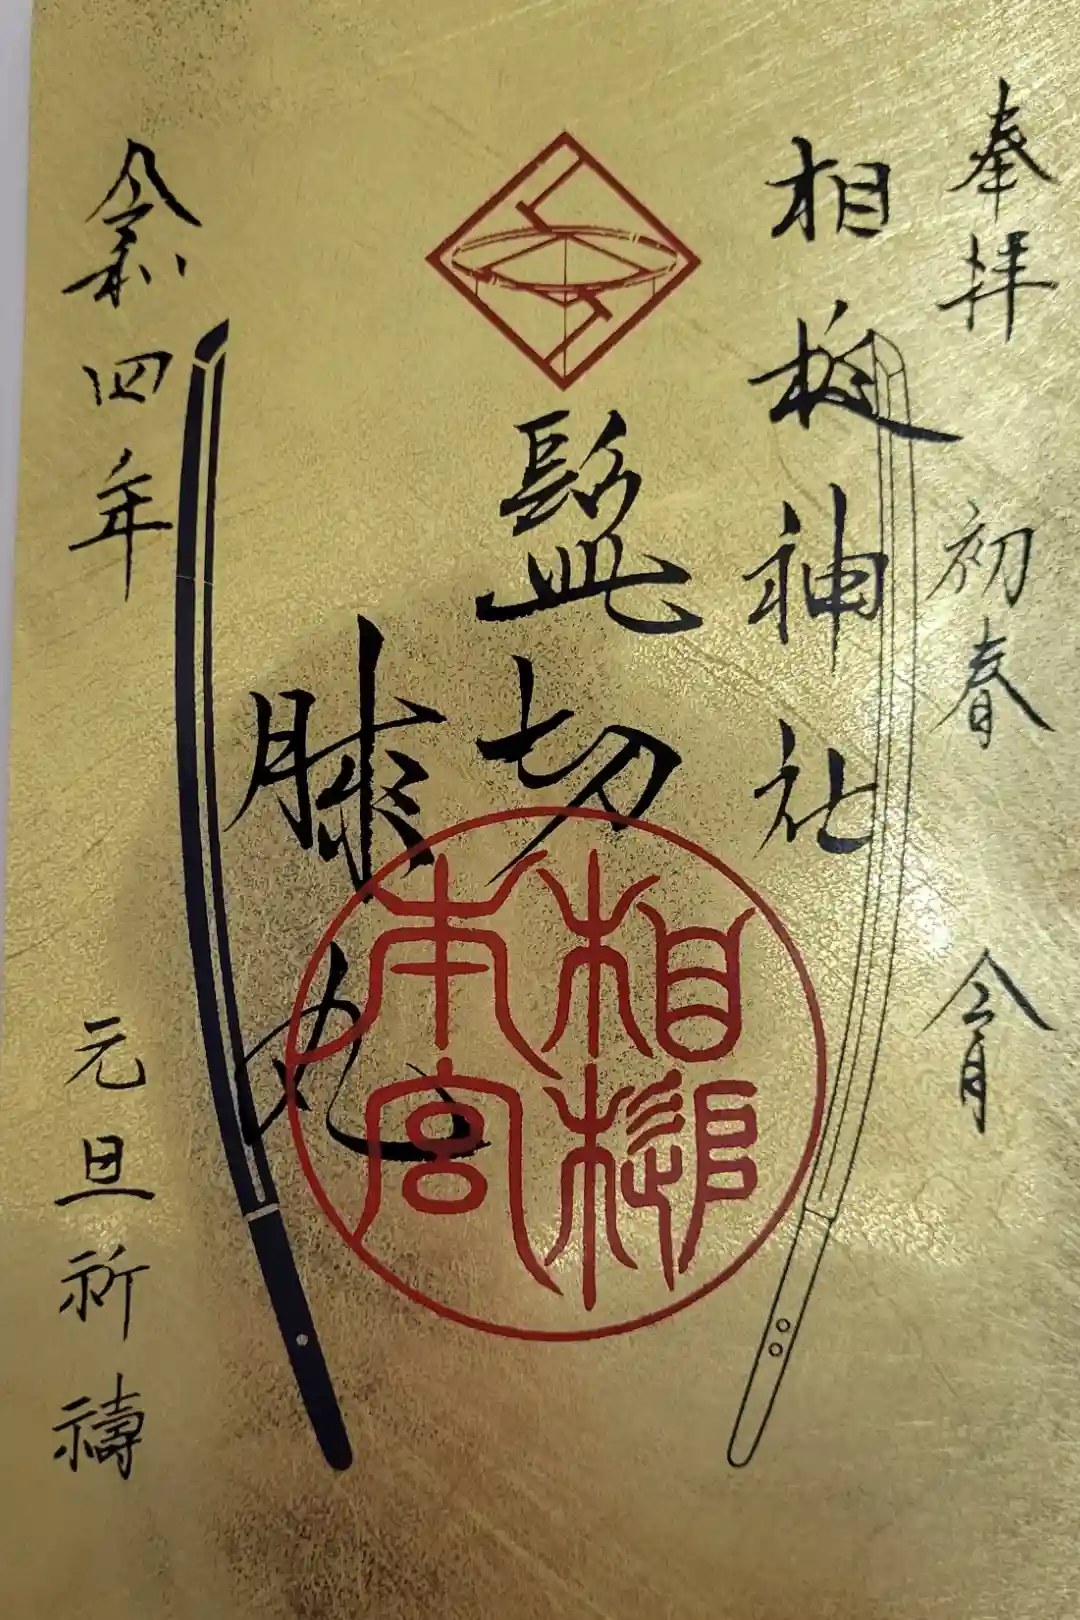 奉拝 初春 令月
相槌神社
髭切
膝丸
令和四年 元旦祈禱
相槌
本宮